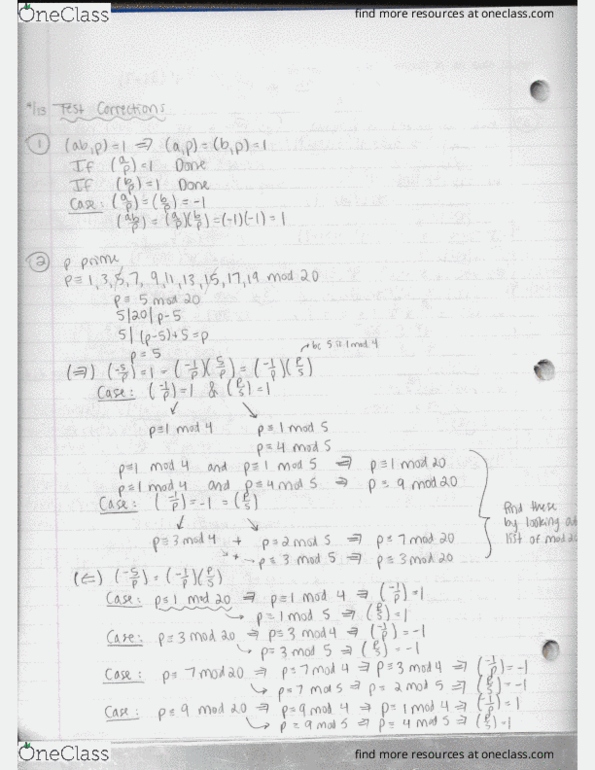 OneClass
find more resources at oneclass.com
4/13 Test Corrections
① (ab,p)=1 ⇒ (a,p)=(b,p)=1
If (a/p)=1 Done
If (b/p)=1 Done
Case: (a/p)=(b/p)=-1
(ab/p)=(a/p)(b/p)=(-1)(-1)=1
② p prime
p≡1,3,5,7,9,11,13,15,17,19 mod 20
p≡5 mod 20
5|20|p-5
5|(p-5)+5=p
p=5
bc 5≡1 mod 4
(⇒) (-5/p)=1=(-1/p)(5/p)=(-1/p)(p/5)
Case: (-1/p)=1 & (p/5)=1
p≡1 mod 4 p≡1 mod 5
p≡4 mod 5
p≡1 mod 4 and p≡1 mod 5 ⇒ p≡1 mod 20
p≡1 mod 4 and p≡4 mod 5 ⇒ p≡9 mod 20
Case: (-1/p)=-1=(p/5)
find these
by looking at
list of mod 20
p≡3 mod 4 + p≡2 mod 5 ⇒ p≡7 mod 20
+ p≡3 mod 5 ⇒ p≡3 mod 20
(⇐) (-5/p)=(-1/p)(p/5)
Case: p≡1 mod 20 ⇒ p≡1 mod 4 ⇒ (-1/p)=1
p≡1 mod 5 ⇒ (p/5)=1
Case: p≡3 mod 20 ⇒ p≡3 mod 4 ⇒ (-1/p)=-1
p≡3 mod 5 ⇒ (p/5)=-1
Case: p≡7 mod 20 ⇒ p≡7 mod 4 ⇒ p≡3 mod 4 ⇒ (-1/p)=-1
p≡7 mod 5 ⇒ p≡2 mod 5 ⇒ (p/5)=-1
Case: p≡9 mod 20 ⇒ p≡9 mod 4 ⇒ p≡1 mod 4 ⇒ (-1/p)=1
p≡9 mod 5 ⇒ p≡4 mod 5 ⇒ (p/5)=1
OneClass
find more resources at oneclass.com